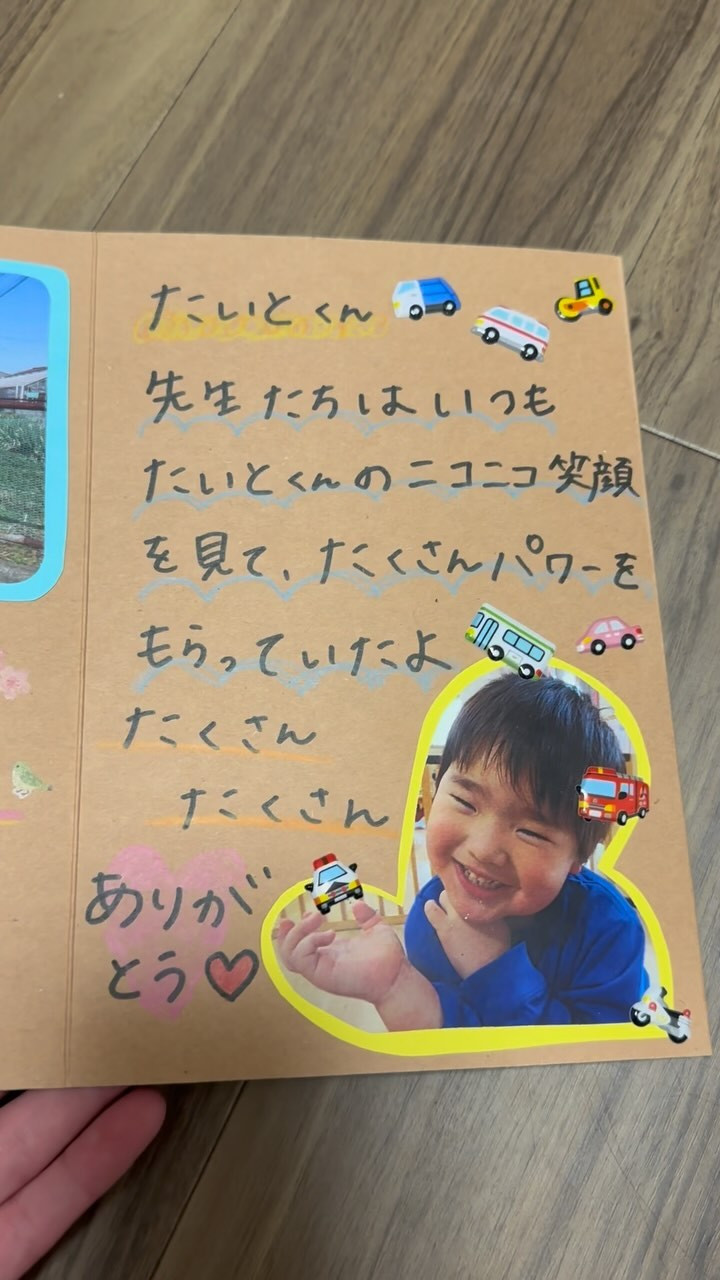 たいとくん
先生たちはいつも
たいとくんのニコニコ笑顔
を見て、たくさんパワーを
もらっていたよ
たくさん
たくさん
ありが
とう♡